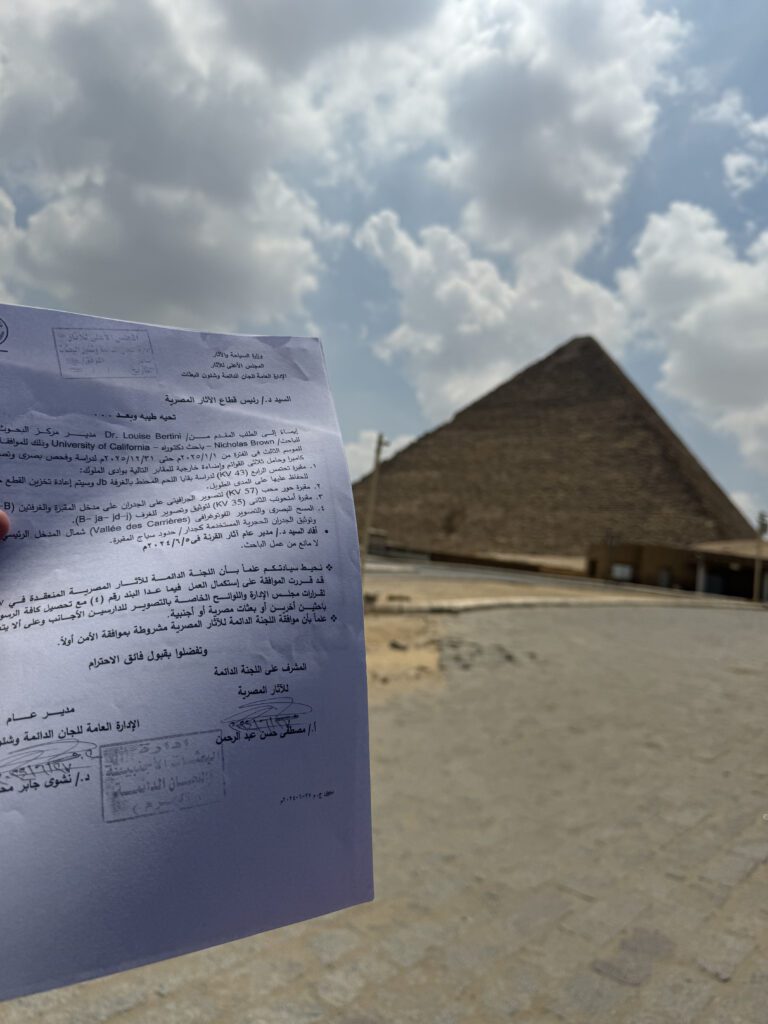 المجلس الأعلى للآثار
وزارة السياحة والآثار
المجلس الأعلى للآثار
الإدارة العامة للجان الدائمة وشئون البعثات
السيد د./ رئيس قطاع الآثار المصرية
تحيه طيبه وبعد ...
إيماءً إلى الطلب المقدم من/ Dr. Louise Bertini مدير مركز البحوث
للباحث/ Nicholas Brown – باحث دكتوراه – University of California وذلك للموافقة
للموسم الثالث في الفترة من ٢٠٢٥/١/١م حتى ٢٠٢٥/١٢/٣١م لدراسة وفحص بصرى
كاميرا وحامل ثلاثى القوائم وإضاءة خارجية للمقابر التالية بوادى الملوك:
١. مقبرة تحتمس الرابع (KV 43) لدراسة بقايا اللحم المحنط بالغرفة Jb وسيتم إعادة تخزين القطع
للحفاظ عليها على المدى الطويل.
٢. مقبرة حور محب (KV 57) لتصوير الجرافيتى على الجدران على مدخل المقبرة والغرفتين
٣. مقبرة أمنحوتب الثانى (KV 35) لتوثيق وتصوير للغرف (B- ja- jd-j).
٤. المسح البصرى والتصوير الفوتوغرافى (Vallée des Carrières) شمال المدخل
وتوثيق الجدران الحجرية المستخدمة كجدار/ حدود سياج المقبرة.
• أفاد السيد د./ مدير عام آثار القرنة فى ٢٠٢٤/٦/٥م
لا مانع من عمل الباحث.
❖ نحيط سيادتكم علماً بأن اللجنة الدائمة للآثار المصرية المنعقدة في
قد قررت الموافقة على إستكمال العمل فيما عدا البند رقم (٤) مع تحصيل كافة
لقرارات مجلس الإدارة واللوائح الخاصة بالتصوير للدارسين الأجانب وعلى ألا
باحثين آخرين أو بعثات مصرية أو أجنبية.
❖ علماً بأن موافقة اللجنة الدائمة للآثار المصرية مشروطة بموافقة الأمن أولاً.
وتفضلوا بقبول فائق الاحترام
المشرف على اللجنة الدائمة
للآثار المصرية
أ./ مصطفى حسن عبد الرحمن
مدير عام
الإدارة العامة للجان الدائمة
د./ نشوى جابر